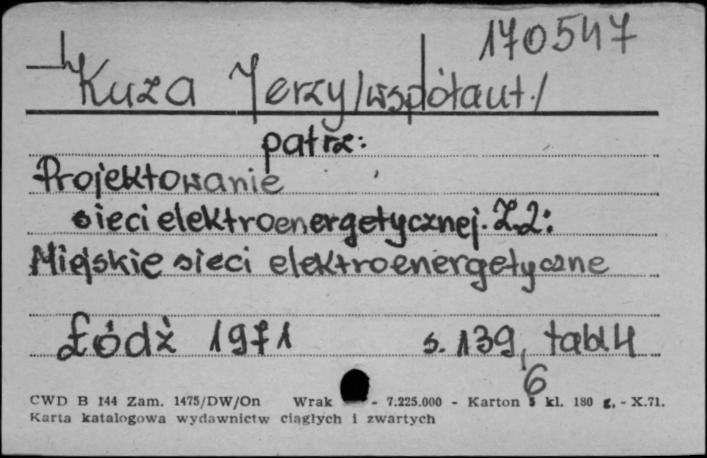 170547
Kuza Jerzy /współaut./
patrz:
Projektowanie
sieci elektroenergetycznej. Z.2:
Miejskie sieci elektroenergetyczne
Łódź 1971 s. 139, tabl 4
6
CWD B 144 Zam. 1475/DW/On Wrak - 7.225.000 - Karton 5 kl. 180 g. - X.71.
Karta katalogowa wydawnictw ciągłych i zwartych